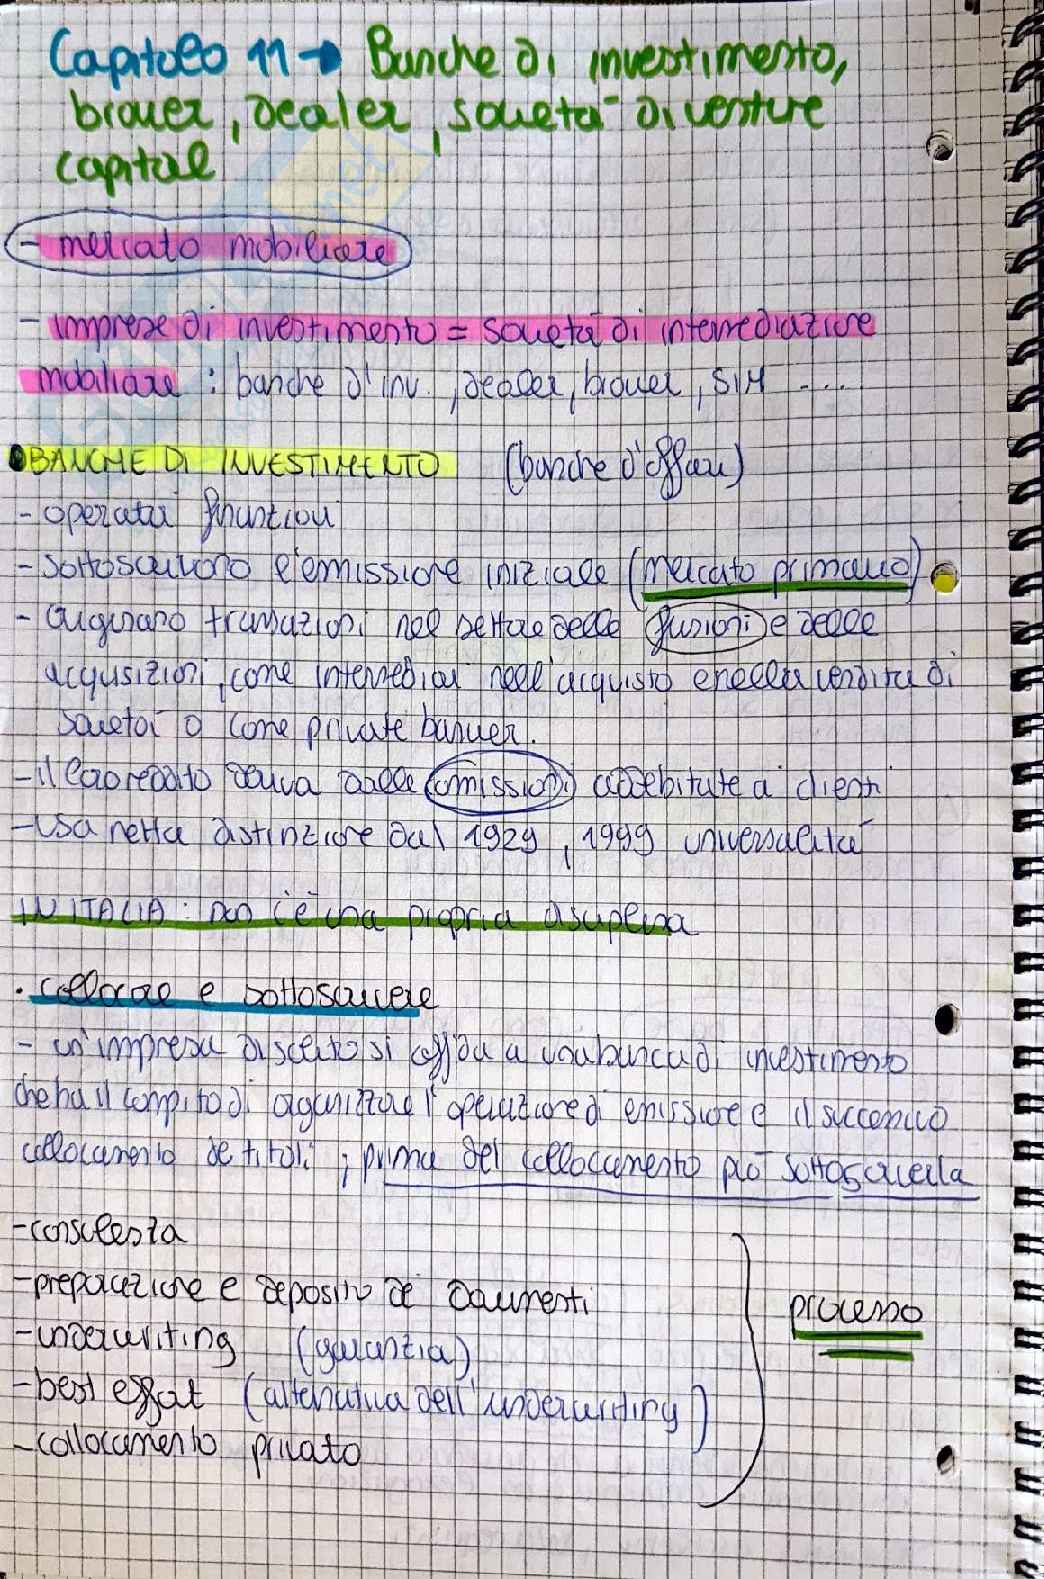 Capitolo 11 → Banche di investimento,
broker, dealer, società di venture
capital
- mercato mobiliare
- imprese di investimento = società di intermediazione
mobiliare : banche d'inv., dealer, broker, SIM ....
• BANCHE DI INVESTIMENTO (banche d'affari)
- operatori finanziari
- sottoscrivono l'emissione iniziale (mercato primario)
- originano transazioni nel settore delle fusioni e delle
acquisizioni, come intermediari nell'acquisto e nella vendita di
società o come private banker.
- il loro reddito deriva dalle commissioni addebitate ai clienti
- usa netta distinzione dal 1929, 1999 universalità
IN ITALIA: non c'è una propria disciplina
• collocare e sottoscrivere
- un'impresa di scelto si affida a una banca di investimento
che ha il compito di organizzare l'operazione di emissione e il successivo
collocamento dei titoli ; prima del collocamento può sottoscriverla
- consulenza
- preparazione e deposito dei documenti
- underwriting (garanzia)
- best effort (alternativa dell'underwriting)
- collocamento privato
processo